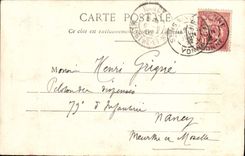 CARTE POSTALE
Ce côté est exclusivement réservé à l'adresse
Monsieur Henri Grigné
Peloton des dispensés
79e d'Infanterie
Nancy
Meurthe et Moselle